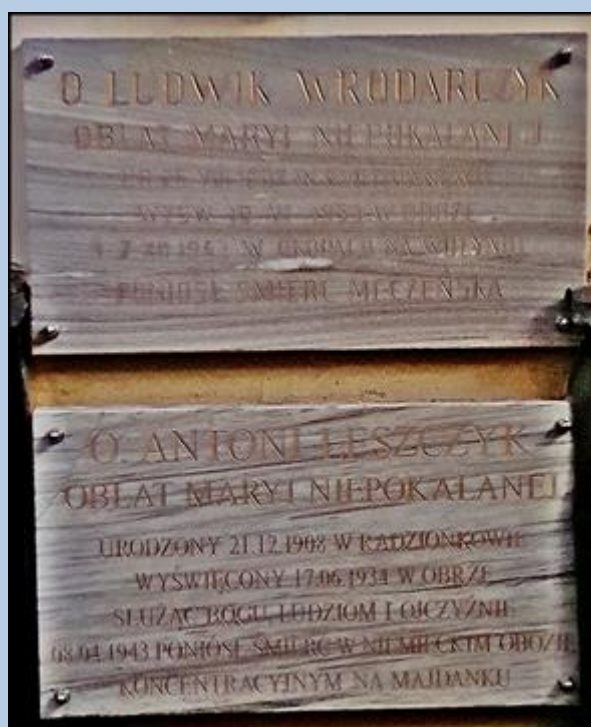 O LUDWIK WRODARCZYK
OBLAT MARYI NIEPOKALANEJ
W
W OKOPACH NA WOŁYNIU
PONIÓSŁ ŚMIERĆ MĘCZEŃSKĄ
O. ANTONI LESZCZYK
OBLAT MARYI NIEPOKALANEJ
URODZONY 21.12.1908 W RADZIONKOWIE
WYŚWIĘCONY 17.06.1934 W OBRZE
SŁUŻĄC BOGU, LUDZIOM I OJCZYŹNIE
08.04.1943 PONIÓSŁ ŚMIERĆ W NIEMIECKIM OBOZIE
KONCENTRACYJNYM NA MAJDANKU